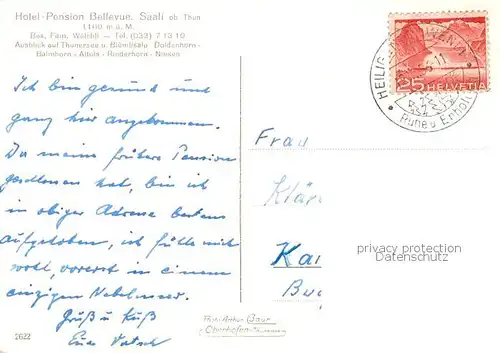 Hotel-Pension Bellevue, Saali ob Thun
1140 m ü. M.
Bes. Fam. Wälchli — Tel. (033) 7 13 10
Ausblick auf Thunersee u. Blümlisalp Doldenhorn-
Balmhorn - Altels - Rinderhorn - Niesen
Ich bin gesund und
ganz hier angekommen.
Da meine frühere Pension
geschlossen hat, bin ich
in obiger Adresse bestens
aufgehoben, ich fühle mich
wohl, vorerst in einem
einzigen Nebelmeer.
Gruß u Kuß
Euer
2622
HELVETIA
25
HEILIG
Ruhe u Erholung
Frau
privacy protection
Datenschutz
Photo Arthur Baur
Oberhofen